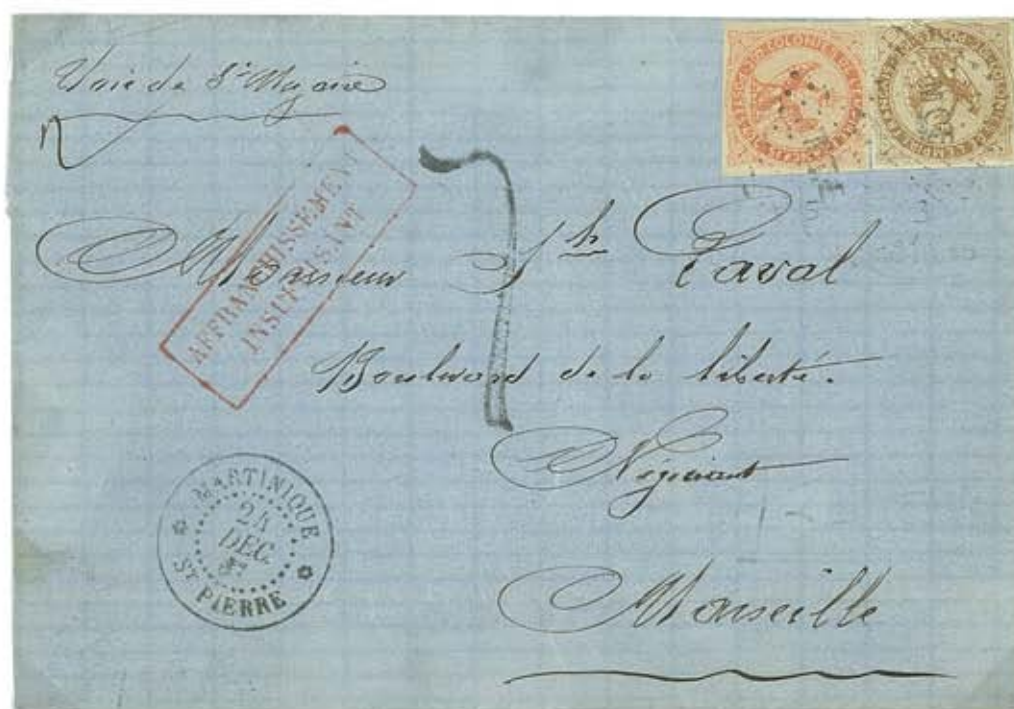 Voie de St Nazaire
COLONIES DE L'EMPIRE
AFFRANCHISSEMENT
INSUFFISANT
7
Monsieur Jh Paval
Boulevard de la liberté.
Négociant
Marseille
MARTINIQUE
24
DEC.
ST PIERRE